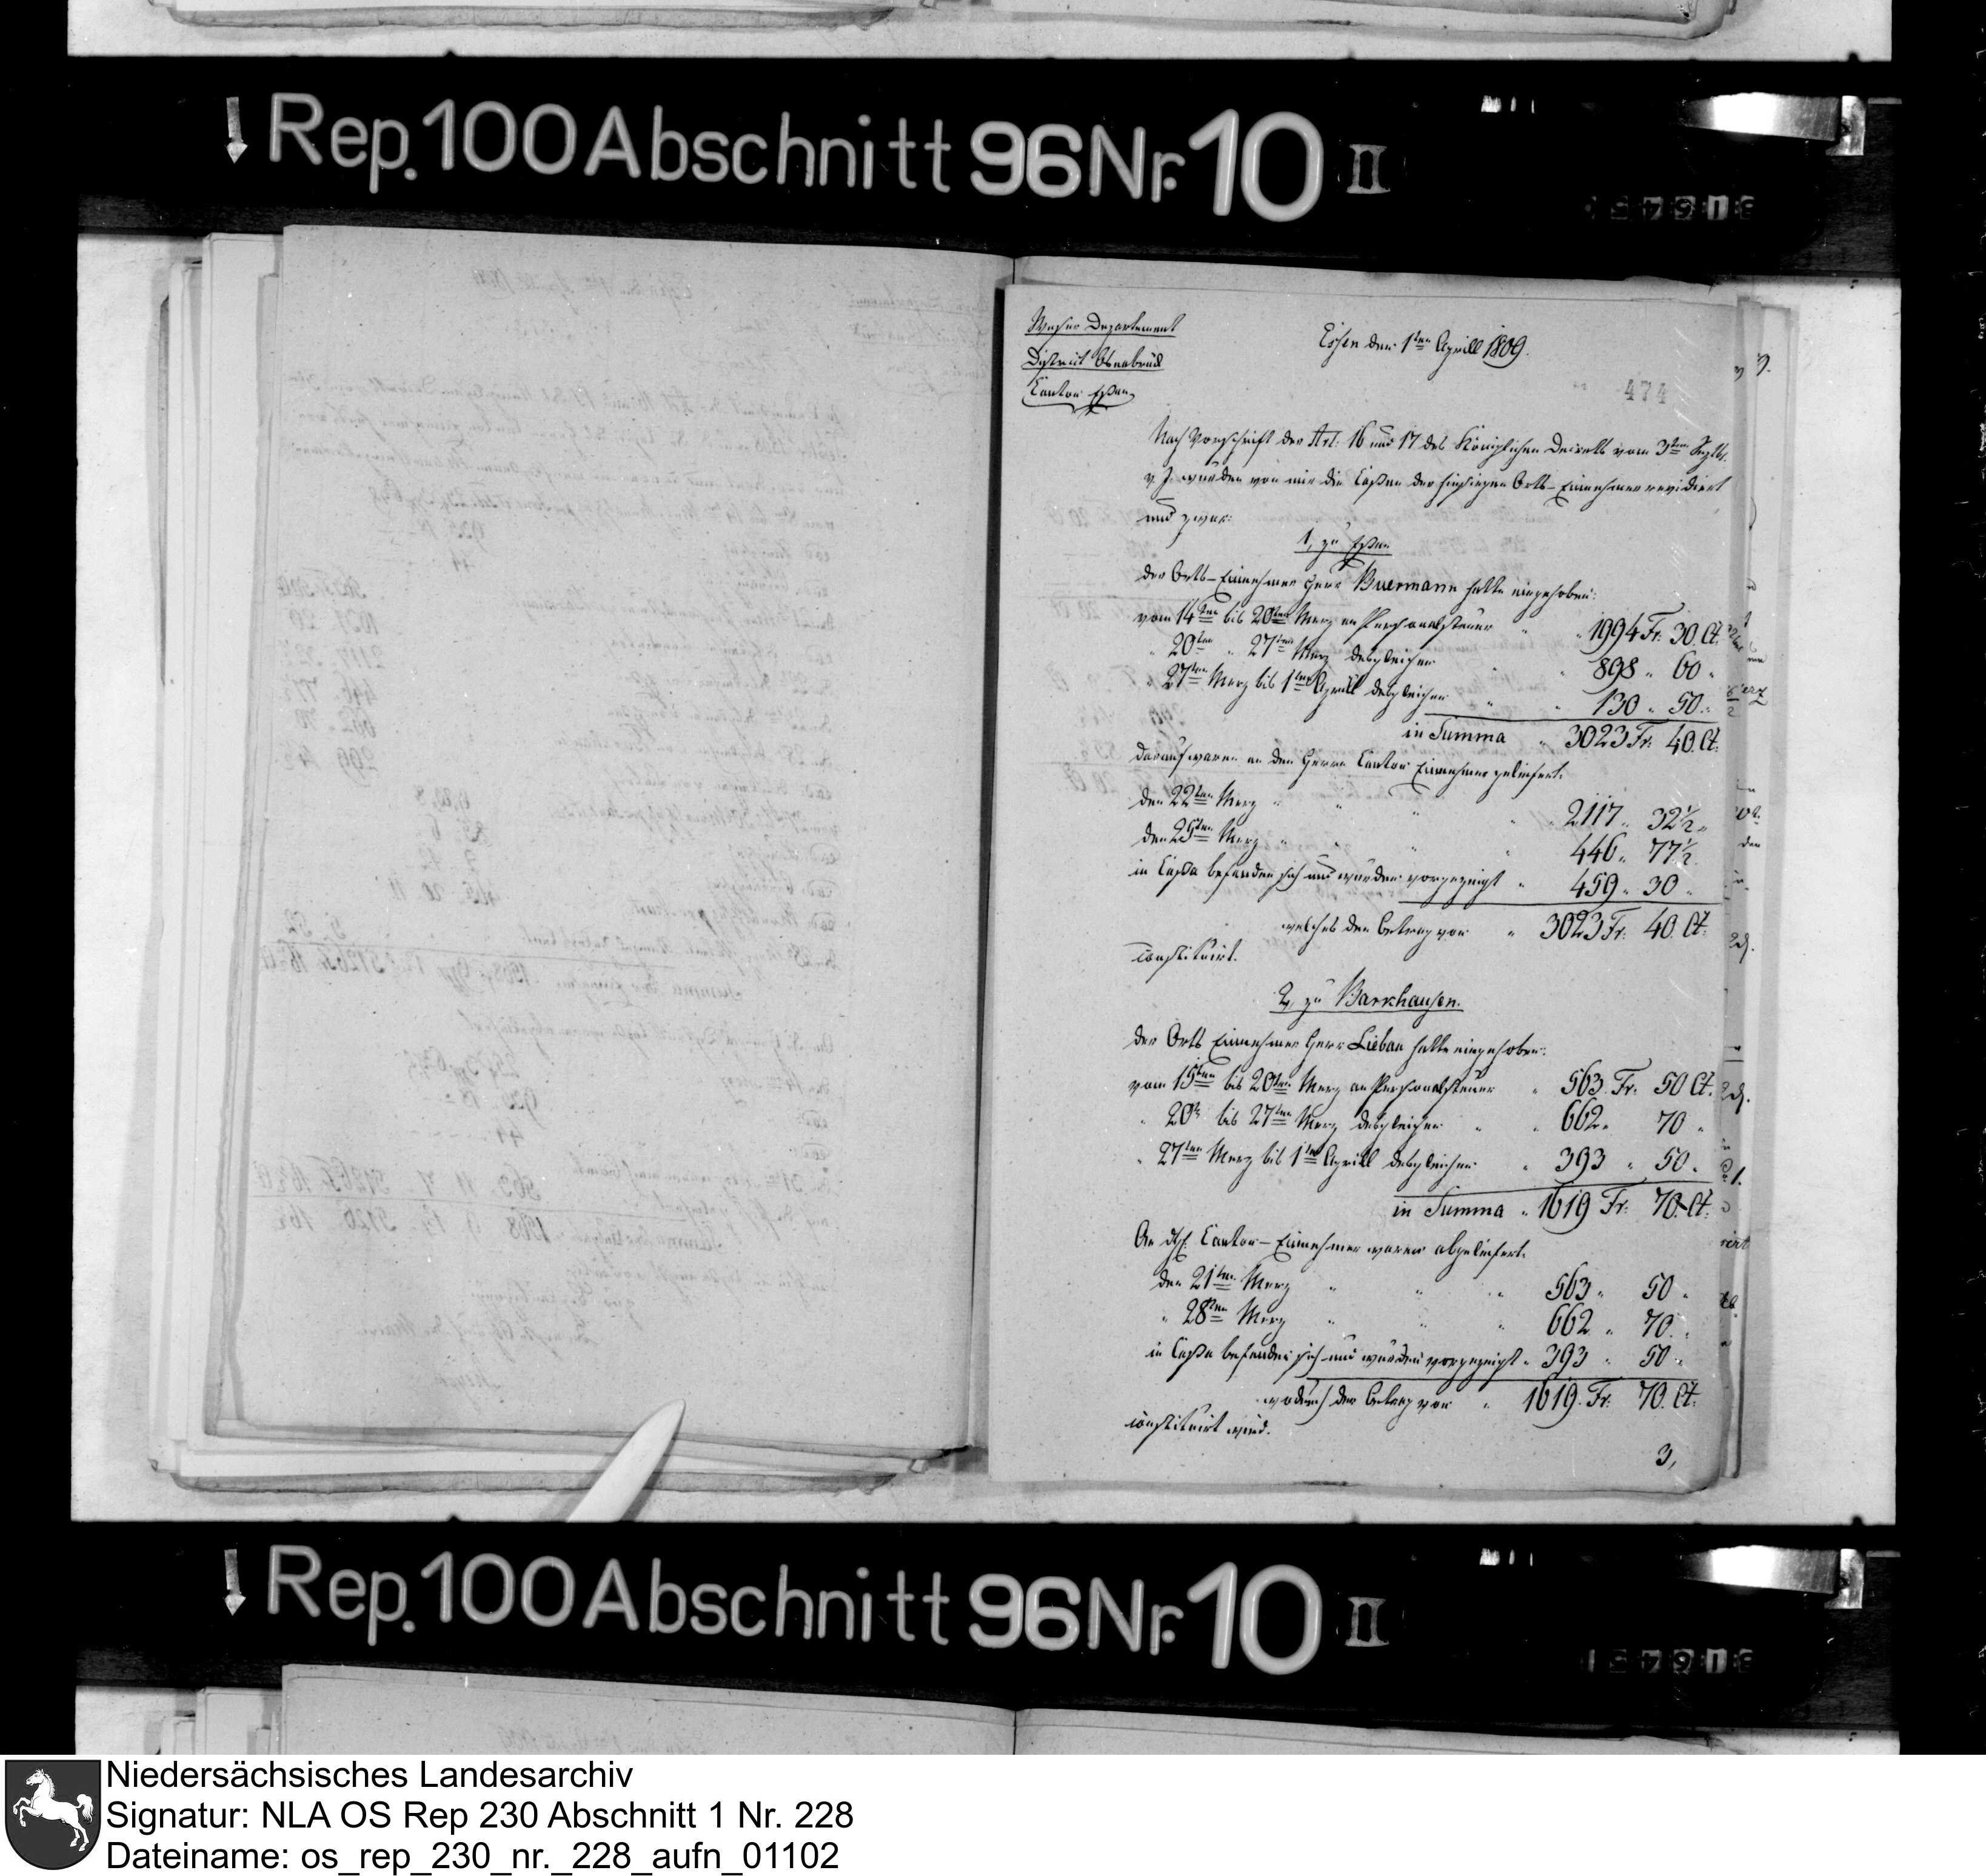 Rep. 100 Abschnitt 96 Nr. 10 II
Weser Departement
District Osnabrück
Canton Essen
Essen den 1ten Aprill 1809.
474
Nach Vorschrift der Art: 16 und 17 des Königlichen Decrets vom 3ten Septbr.
v. J. wurden von mir die Cassen der hiesigen Orts-Einnehmer revidiert
und zwar:
1, zu Essen
der Orts-Einnehmer Herr Buermann hatte eingehoben:
vom 14ten bis 20ten Merz an Personalsteuer " " 1994 Fr: 30. Ct.
" 20ten " 27ten Merz desgleichen " " 898 " 60 "
" 27ten Merz bis 1ten Aprill desgleichen " " 130 " 50 "
in Summa " 3023 Fr: 40. Ct.
darauf waren an den Herrn Canton Einnehmer geliefert:
den 22ten Merz " " " " 2117 " 32 1/2 "
den 25ten Merz " " " " 446 " 77 1/2
in Cassa befanden sich und wurden vorgezeigt " 459 " 30 "
welches den Betrag von " 3023 Fr: 40. Ct.
constituirt.
2, zu Barkhausen.
der Orts Einnehmer Herr Liebau hatte eingehoben:
vom 15ten bis 20ten Merz an Personalsteuer " 563 Fr: 50 Ct.
" 20ten bis 27ten Merz desgleichen " " 662 " 70 "
" 27ten Merz bis 1ten Aprill desgleichen " 393 " 50 "
in Summa " 1619 Fr: 70. Ct.
An Canton-Einnehmer waren abgeliefert:
den 21ten Merz " " " 563 " 50 "
" 28ten Merz " " " 662 " 70 "
in Cassa befanden sich und wurden vorgezeigt " 393 " 50 "
wodurch der Betrag von " 1619. Fr: 70. Ct.
constituirt wird.
3,
Rep. 100 Abschnitt 96 Nr. 10 II
Niedersächsisches Landesarchiv
Signatur: NLA OS Rep 230 Abschnitt 1 Nr. 228
Dateiname: os_rep_230_nr._228_aufn_01102